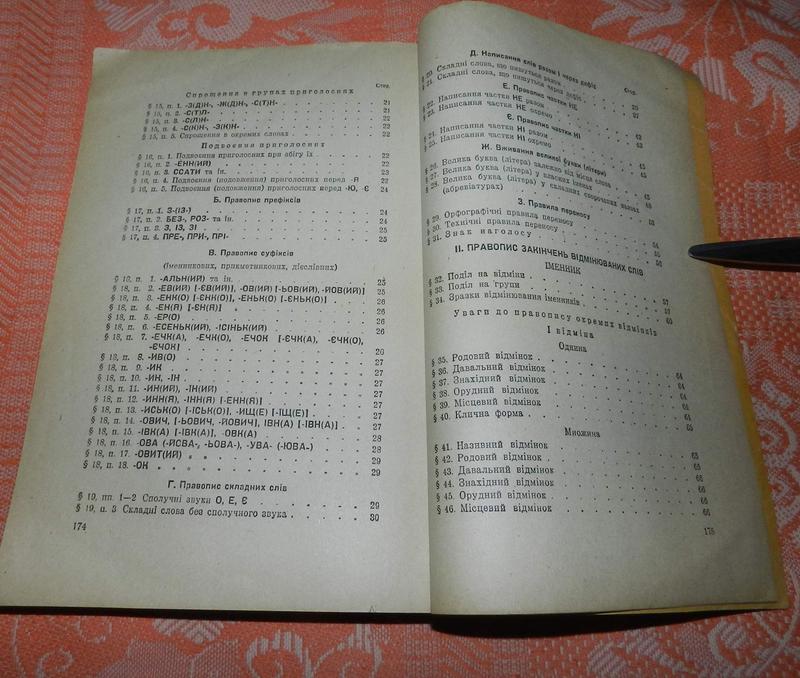 Стор.
Спрощення в групах приголосних
§ 15, п. 1. -З(Д)Н-, -Ж(Д)Н-, -С(Т)Н- 21
§ 15, п. 2. -С(Т)Л- 21
§ 15, п. 3. -С(Л)Н- 22
§ 15, п. 4. -С(К)Н-, -З(К)Н- 22
§ 15, п. 5. Спрощення в окремих словах 22
Подвоєння приголосних
§ 16, п. 1. Подвоєння приголосних при збігу їх 22
§ 16, п. 2. -ЕНН(ИЙ) 22
§ 16, п. 3. ССАТИ та ін. 23
§ 16, п. 4. Подвоєння (подовження) приголосних перед -Я 23
§ 16, п. 5. Подвоєння (подовження) приголосних перед -Ю, -Є 24
Б. Правопис префіксів
§ 17, п. 1. З-(ІЗ-) 24
§ 17, п. 2. БЕЗ-, РОЗ- та ін. 24
§ 17, п. 3. З, ІЗ, ЗІ 25
§ 17, п. 4. ПРЕ-, ПРИ-, ПРІ- 25
В. Правопис суфіксів
(Іменникових, прикметникових, дієслівних)
§ 18, п. 1. -АЛЬН(ИЙ) та ін. 25
§ 18, п. 2. -ЕВ(ИЙ) [-ЄВ(ИЙ)], -ОВ(ИЙ) [-ЬОВ(ИЙ), -ЙОВ(ИЙ)] 25
§ 18, п. 3. -ЕНК(О) [-ЄНК(О)], -ЕНЬК(О) [-ЄНЬК(О)] 26
§ 18, п. 4. -ЕН(Я) [-ЄН(Я)] 26
§ 18, п. 5. -ЕР(О) 26
§ 18, п. 6. -ЕСЕНЬК(ИЙ), -ІСІНЬК(ИЙ) 26
§ 18, п. 7. -ЕЧК(А), -ЕЧК(О), -ЕЧОК [-ЄЧК(А), -ЄЧК(О),
-ЄЧОК] 26
§ 18, п. 8. -ИВ(О) 27
§ 18, п. 9. -ИК 27
§ 18, п. 10. -ИН, -ІН 27
§ 18, п. 11. -ИН(ИЙ), -ІН(ИЙ) 27
§ 18, п. 12. -ИНН(Я), -ІНН(Я) [-ЕНН(Я)] 27
§ 18, п. 13. -ИСЬК(О) [-ІСЬК(О)], -ИЩ(Е) [-ІЩ(Е)] 27
§ 18, п. 14. -ОВИЧ, [-ЬОВИЧ, -ЙОВИЧ], ІВН(А) [-ІВН(А)] 27
§ 18, п. 15. -ІВК(А) [-ІВК(А)], -ОВК(А) 28
§ 18, п. 16. -ОВА (-ЙСВА-, -ЬОВА-), -УВА- (-ЮВА-) 28
§ 18, п. 17. -ОВИТ(ИЙ) 29
§ 18, п. 18. -ОК 29
Г. Правопис складних слів
§ 19, пп. 1—2 Сполучні звуки О, Е, Є 29
§ 19, п. 3 Складні слова без сполучного звука 30
174
Д. Написання слів разом і через дефіс
Складні слова, що пишуться разом
Складні слова, що пишуться через дефіс
Е. Правопис частки НЕ
§ 22. Написання частки НЕ разом
§ 23. Написання частки НЕ окремо
Є. Правопис частки НІ
§ 24. Написання частки НІ разом
§ 25. Написання частки НІ окремо
Ж. Вживання великої букви (літери)
§ 26. Велика буква (літера) залежно від місця слова
§ 27. Велика буква (літера) у власних іменах
§ 28. Велика буква (літера) у складних скорочених назвах
(абревіатурах)
З. Правила переносу
§ 29. Орфографічні правила переносу
§ 30. Технічні правила переносу
§ 31. Знак наголосу
II. ПРАВОПИС ЗАКІНЧЕНЬ ВІДМІНЮВАНИХ СЛІВ
ІМЕННИК
§ 32. Поділ на відміни
§ 33. Поділ на групи
§ 34. Зразки відмінювання іменників
Уваги до правопису окремих відмінків
I відміна
Однина
§ 35. Родовий відмінок 64
§ 36. Давальний відмінок 64
§ 37. Знахідний відмінок 64
§ 38. Орудний відмінок 64
§ 39. Місцевий відмінок
§ 40. Клична форма
Множина
§ 41. Називний відмінок 65
§ 42. Родовий відмінок 65
§ 43. Давальний відмінок
§ 44. Знахідний відмінок
§ 45. Орудний відмінок 66
§ 46. Місцевий відмінок 66
175